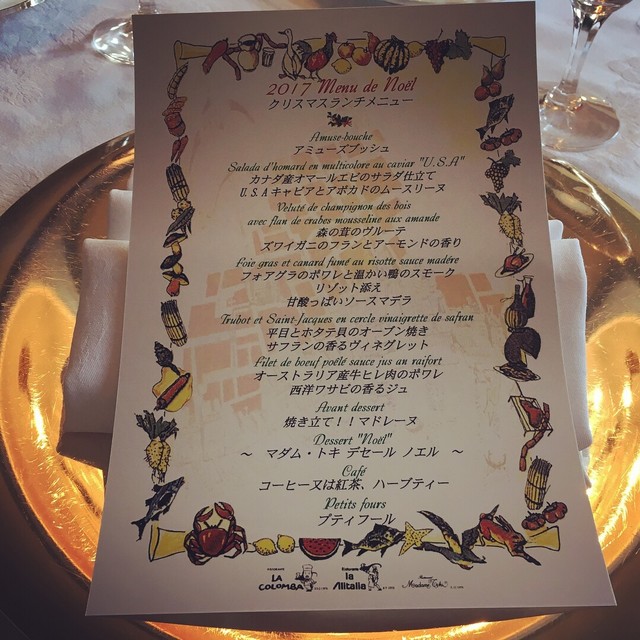 2017 Menu de Noël
クリスマスランチメニュー
Amuse-bouche
アミューズブッシュ
Salada d'homard en multicolore au caviar "U.S.A"
カナダ産オマールエビのサラダ仕立て
U.S.Aキャビアとアボカドのムースリーヌ
Veluté de champignon des bois
avec flan de crabes mousseline aux amande
森の茸のヴルーテ
ズワイガニのフランとアーモンドの香り
Foie gras et canard fumé au risotto sauce madère
フォアグラのポワレと温かい鴨のスモーク
リゾット添え
甘酸っぱいソースマデラ
Trubot et Saint-Jacques en cercle vinaigrette de safran
平目とホタテ貝のオーブン焼き
サフランの香るヴィネグレット
Filet de boeuf poêlé sauce jus an raifort
オーストラリア産牛ヒレ肉のポワレ
西洋ワサビの香るジュ
Avant dessert
焼き立て！！マドレーヌ
Dessert "Noël"
～ マダム・トキ デセール ノエル ～
Café
コーヒー又は紅茶、ハーブティー
Petits fours
プティフール
LA COLOMBA
la Alitalia
Madame Toki